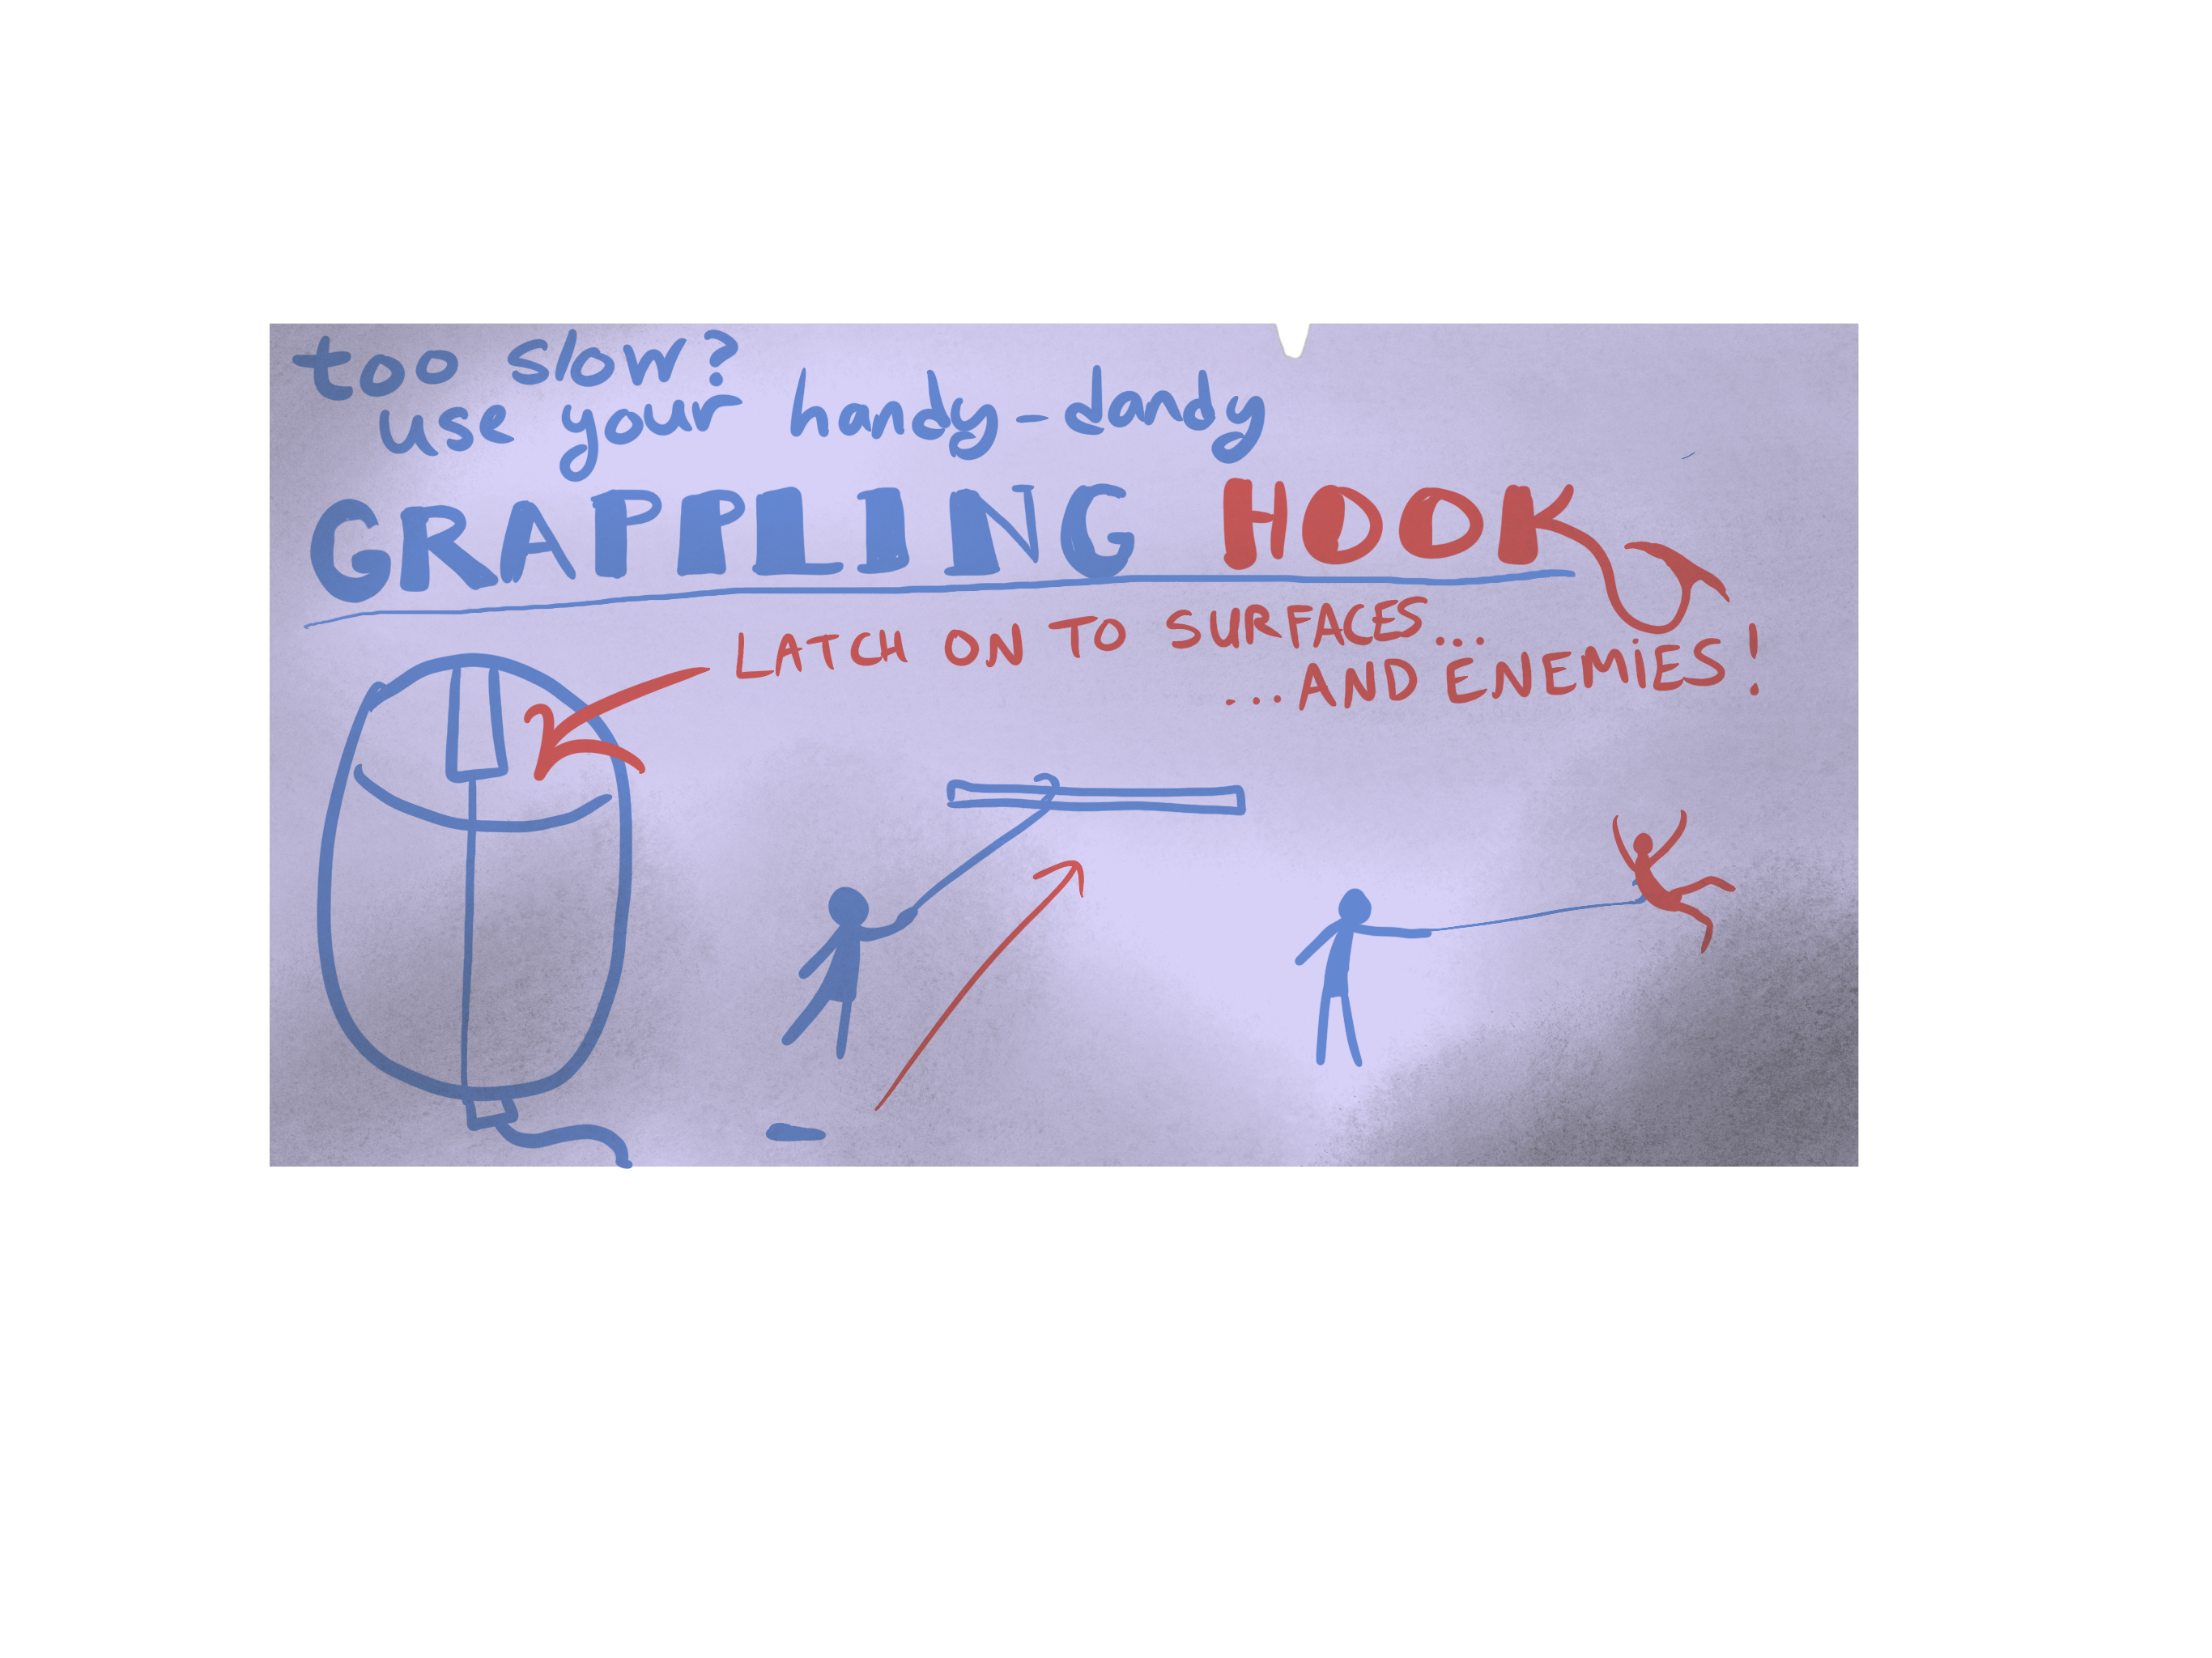 too slow?
use your handy-dandy
GRAPPLING HOOK
LATCH ON TO SURFACES...
...AND ENEMiES!